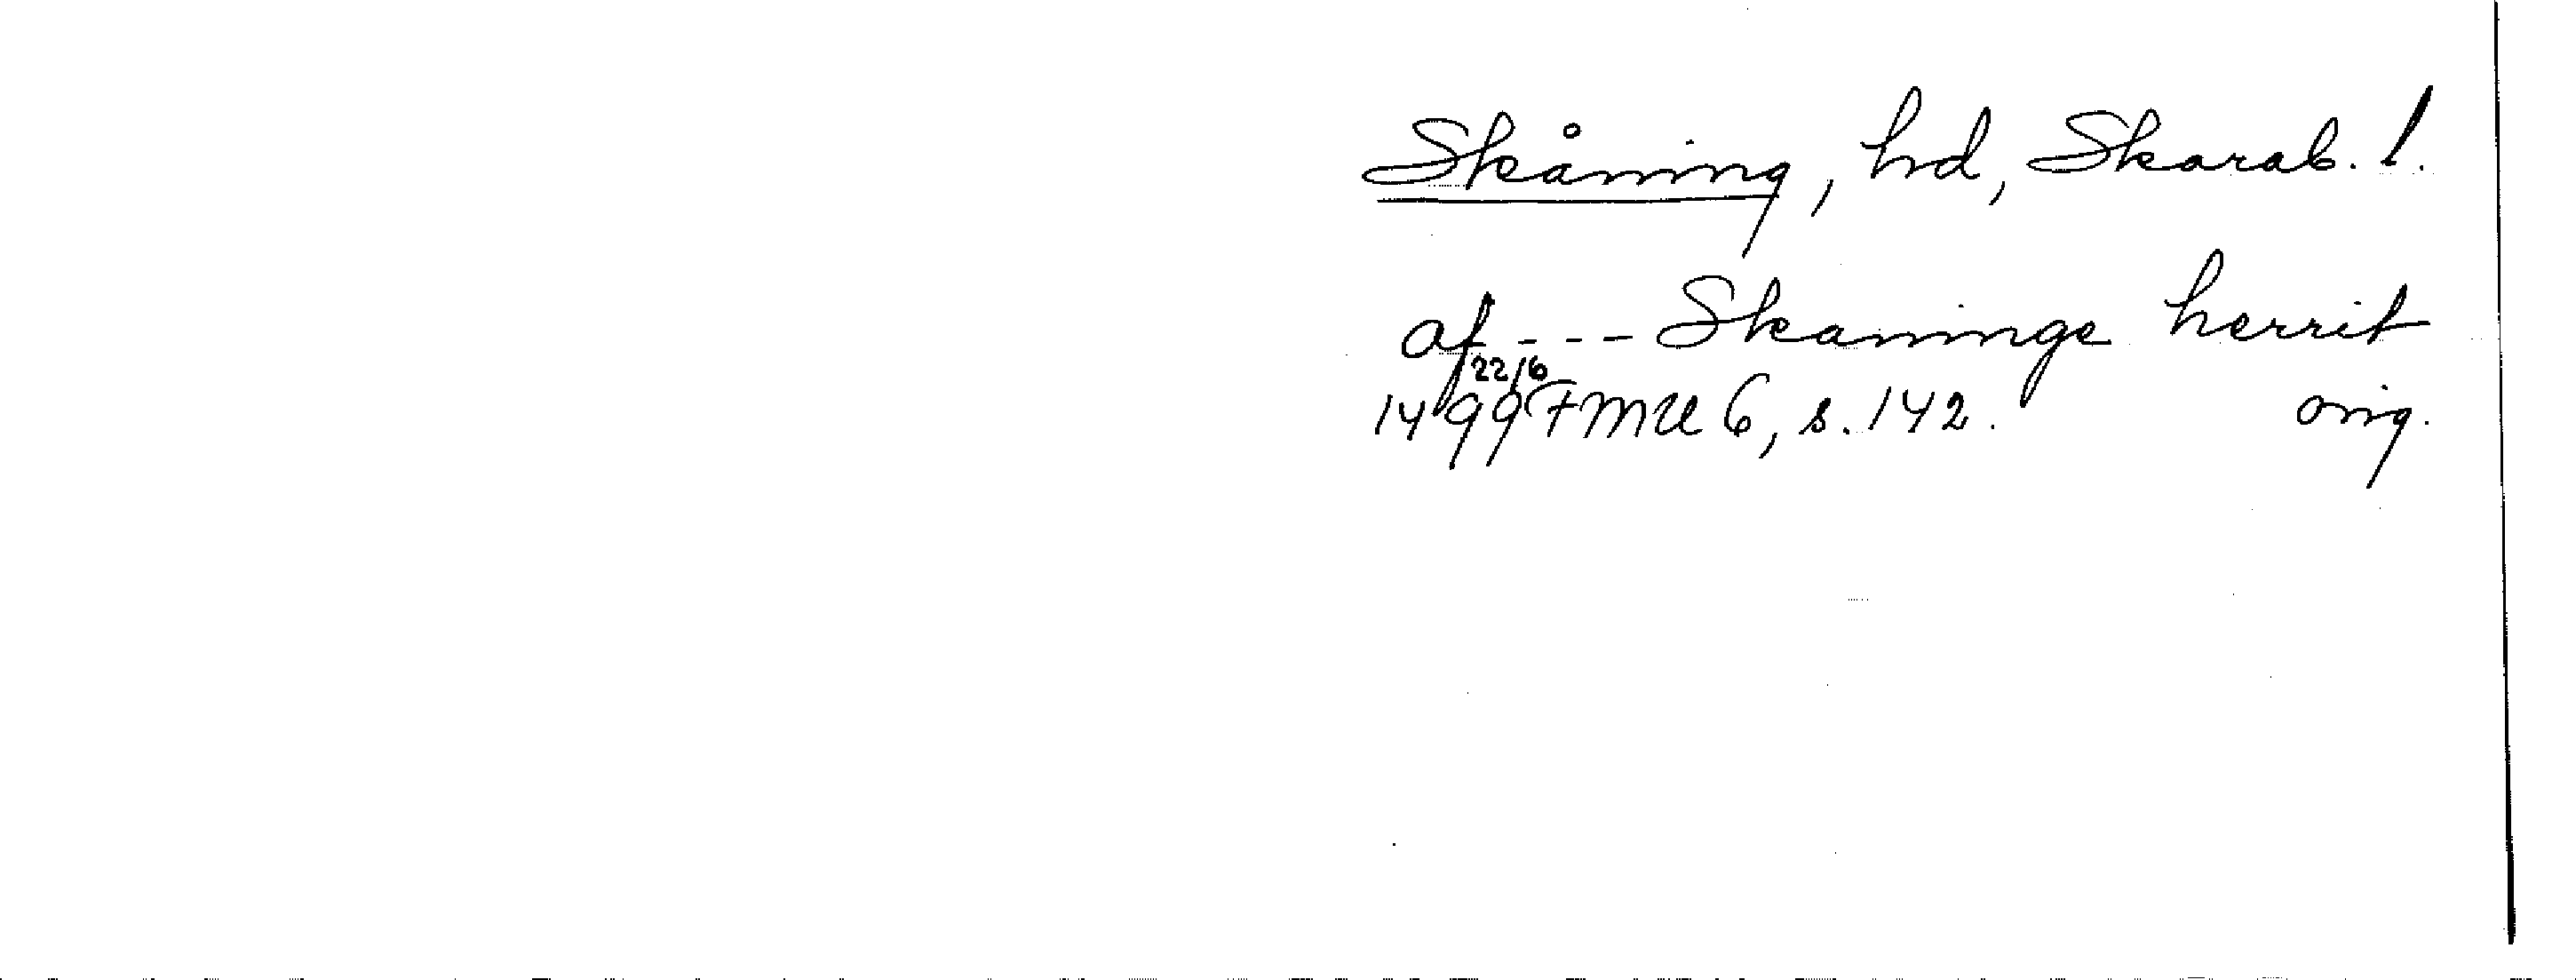 Skåning, hd, Skarab. l.
af - - - Skaninge herrit
1499 22/6 FMU 6, s. 142. orig.